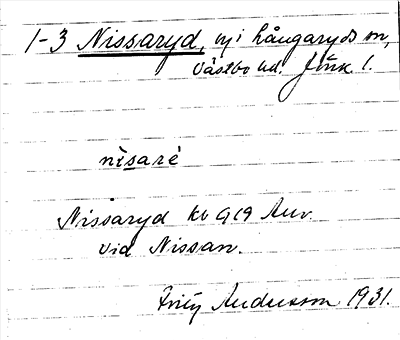 1-3 Nissaryd, i Långaryds sn,
Västbo hd. Jönk. l.
nìsaré
Nissaryd
vid Nissan.
Andersson 1931.